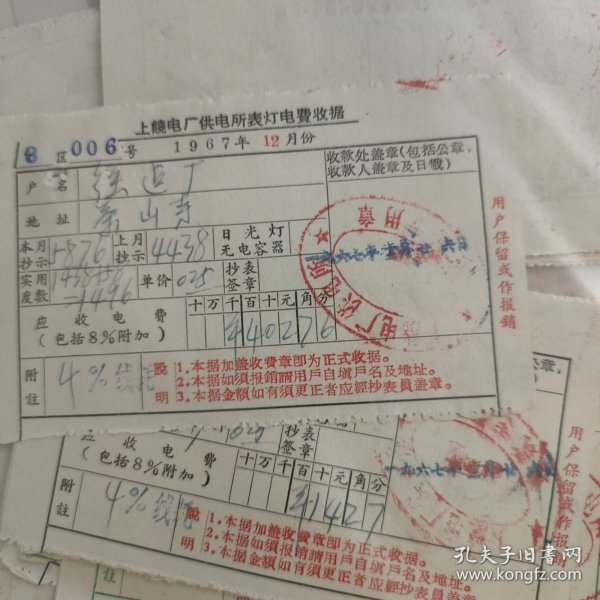 上饒电厂供电所表灯电費收据
18 区 006 号 1967年 12月份
户名
收款处盖章(包括公章,
收款人盖章及日戳)
地址 茶山寺
本月抄示 5876 上月抄示 4438 日光灯无电容器
实用度数 1438+58 =1496 单价 025 抄表签章
应收电費
(包括8%附加)
十万千百十元角分
¥40276
附註 4%线耗
說明
1.本据加盖收費章卽为正式收据。
2.本据如須报銷請用戶自塡戶名及地址。
3.本据金額如有須更正者应經抄表員盖章。
用戶保留或作报銷
一九六七年
六日
应收电費
(包括8%附加)
抄表签章
十万千百十元角分
¥1427
附註 4%线耗
說明
1.本据加盖收費章卽为正式收据。
2.本据如須报銷請用戶自塡戶名及地址。
3.本据金額如有須更正者应經抄表員盖章。
用戶保留或作报銷
一九六七年
孔夫子旧书网
www.kongfz.com